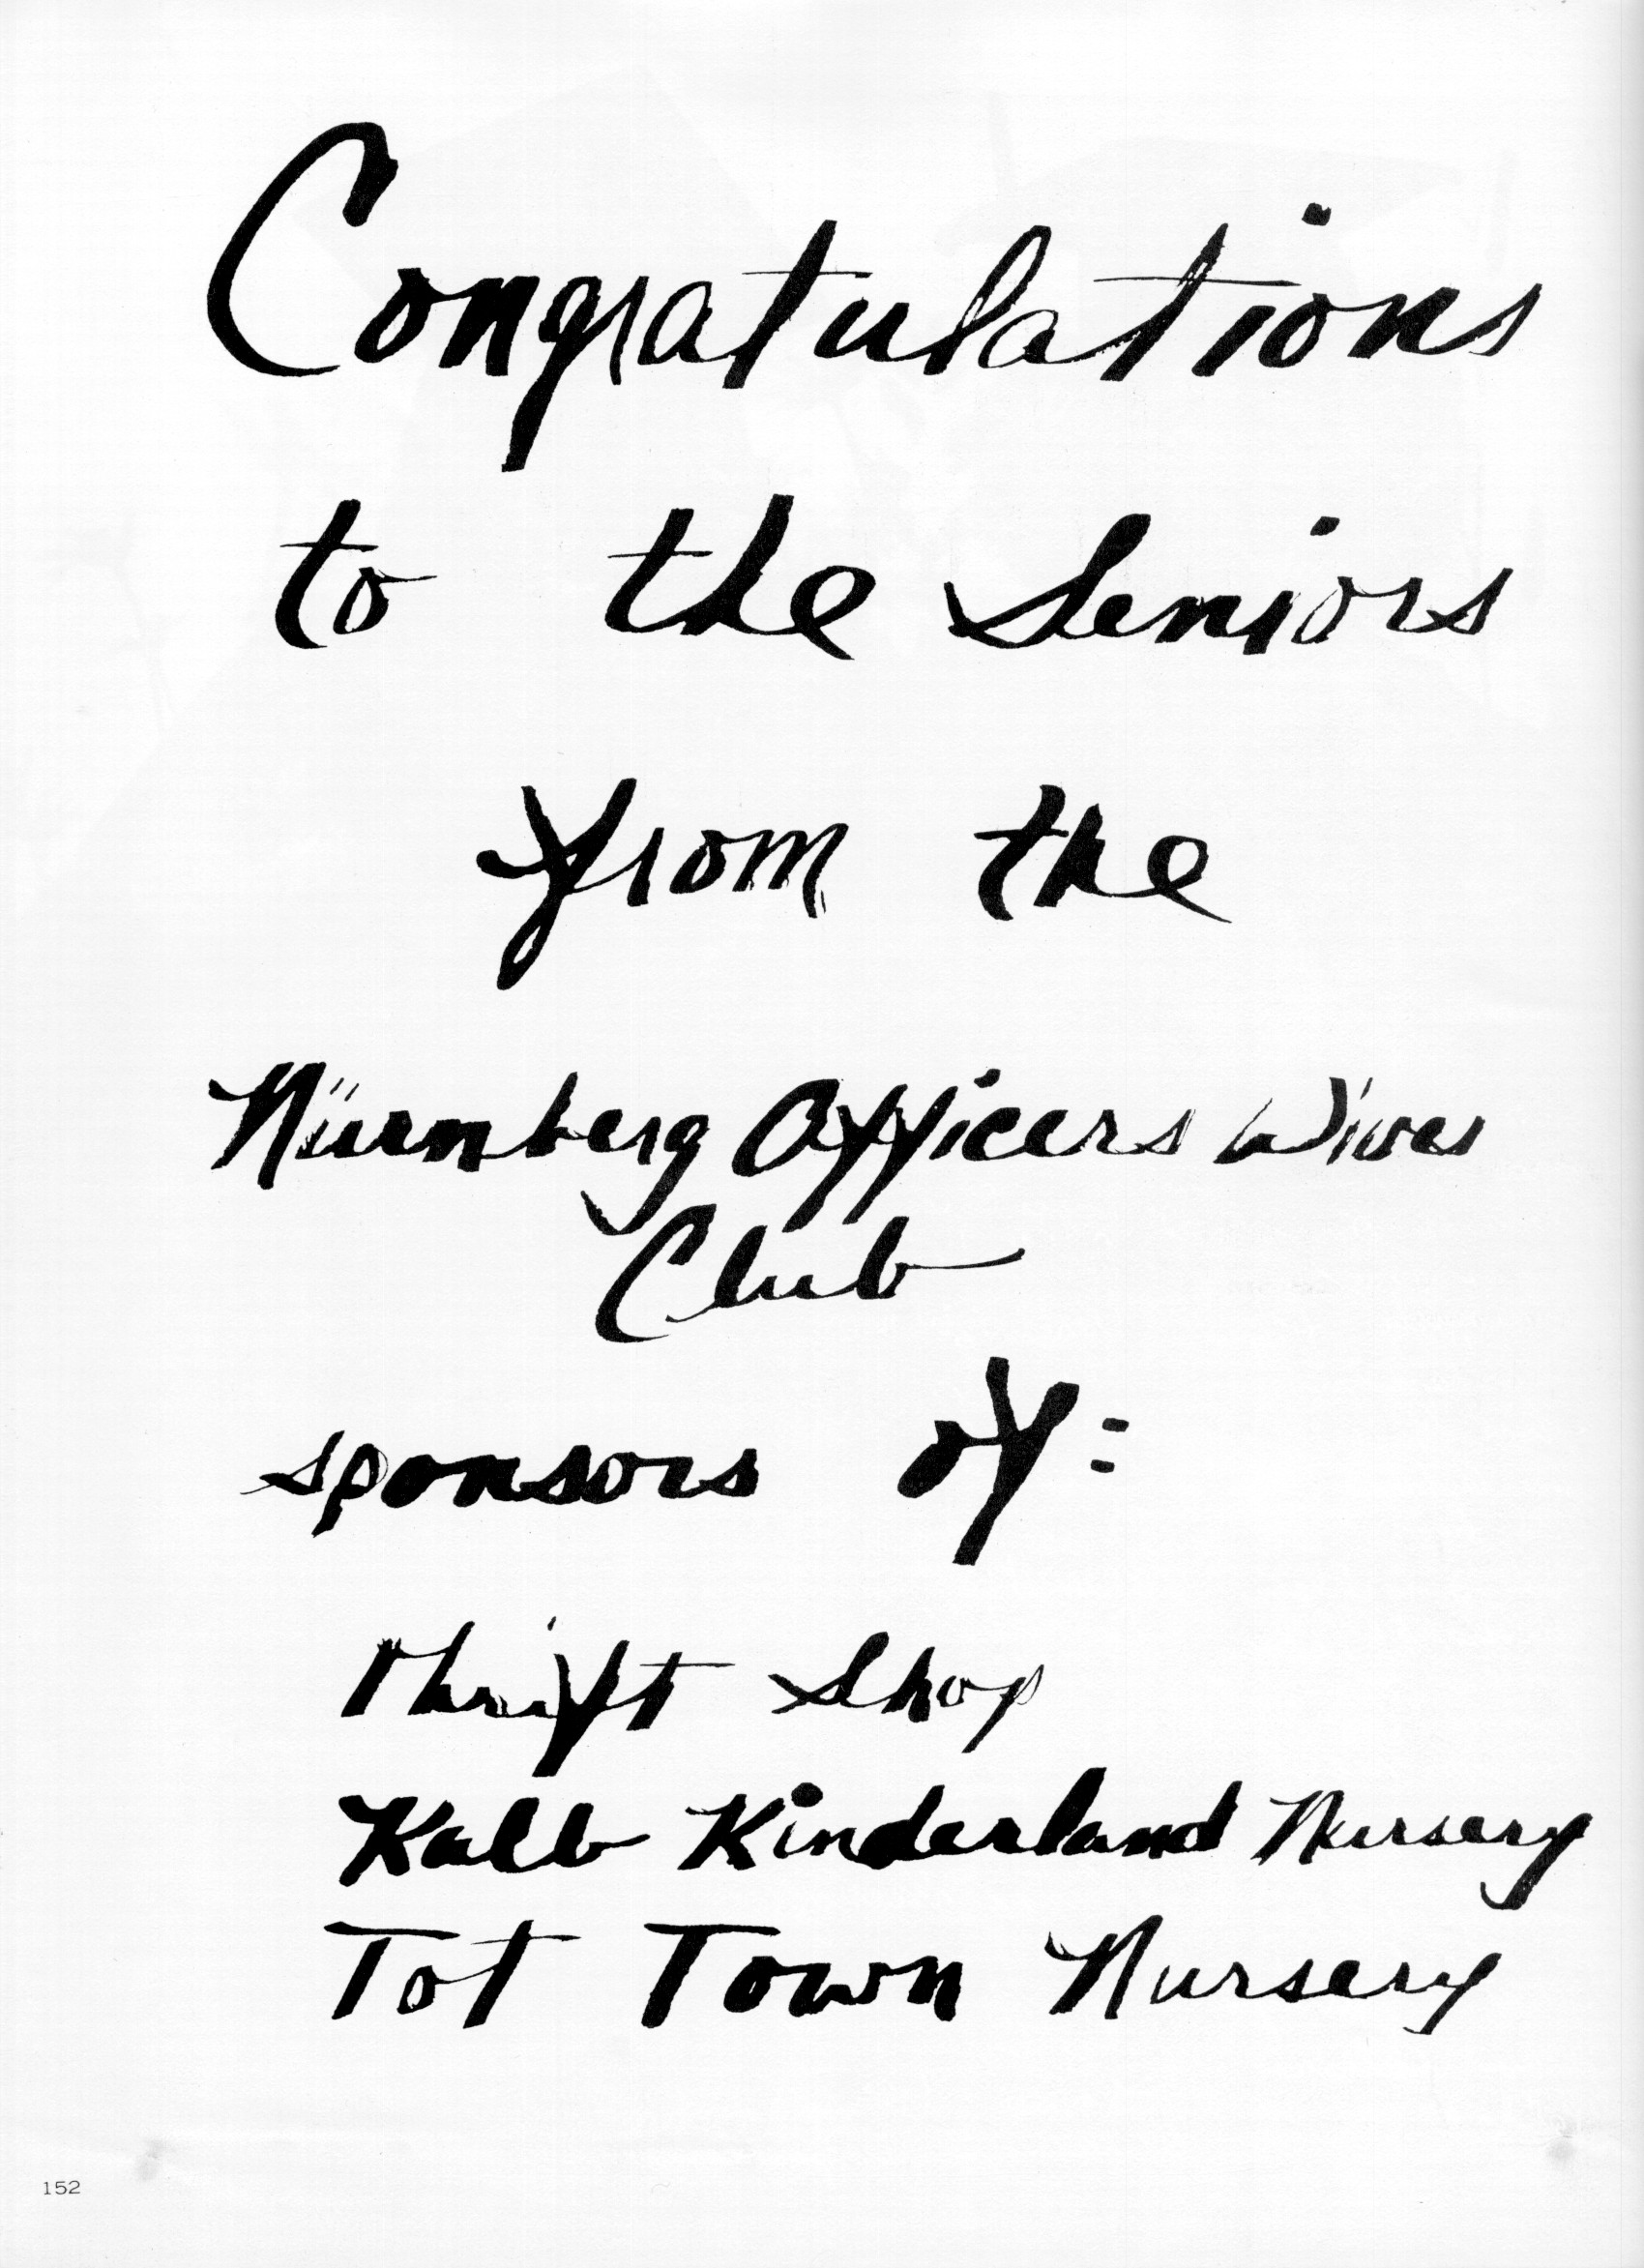 Congratulations
to the Seniors
from the
Nürnberg Officers Wives
Club
sponsors of:
Thrift Shop
Kalb Kinderland Nursery
Tot Town Nursery
152